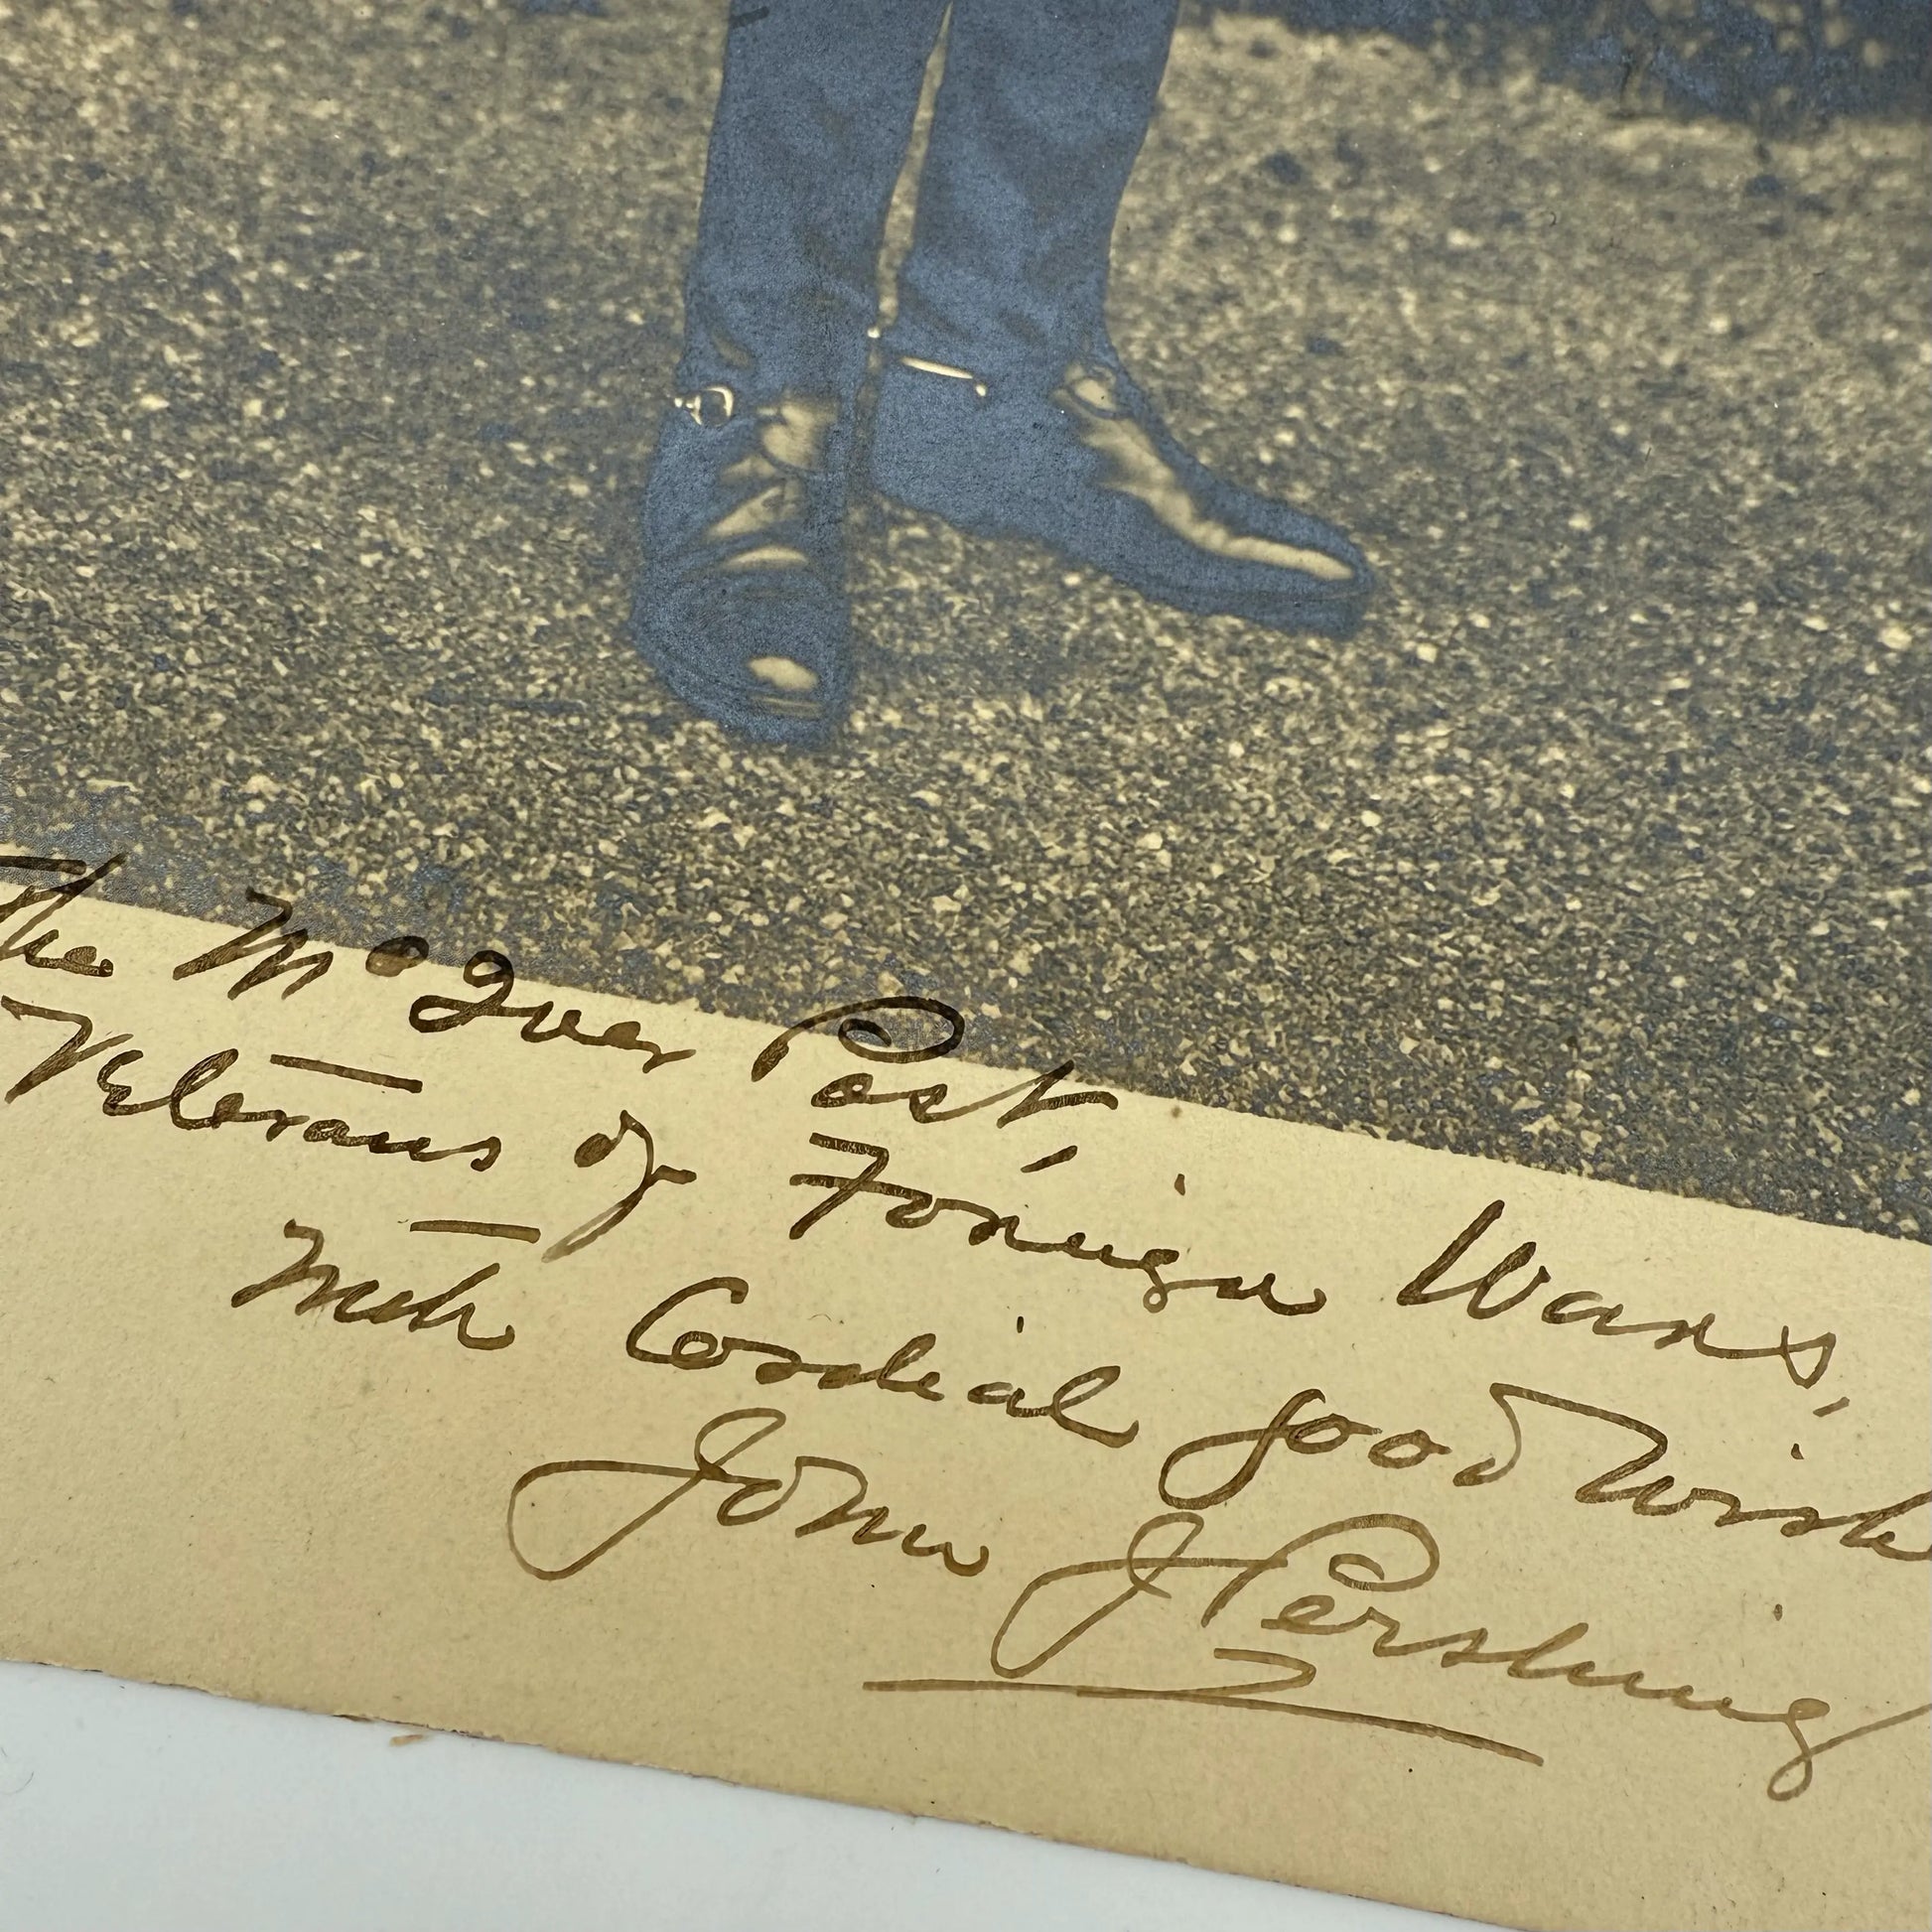 The McIver Post,
Veterans of Foreign Wars,
With Cordial good wishe
John J Pershing